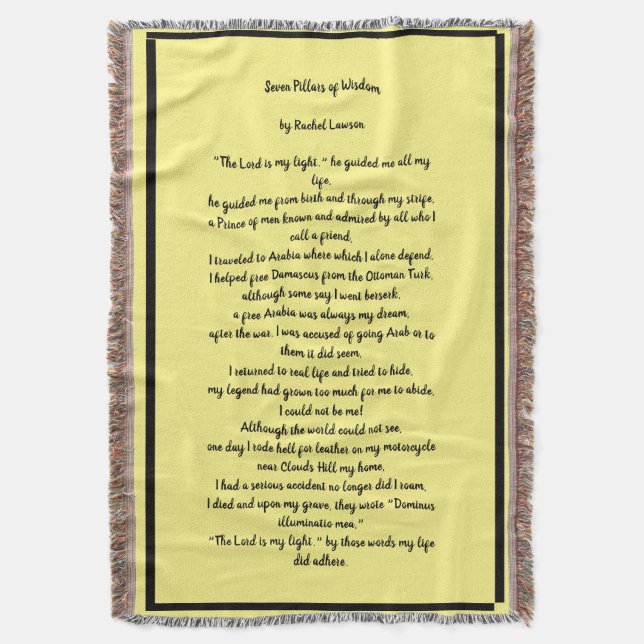 Seven Pillars of Wisdom
by Rachel Lawson
"The Lord is my light." he guided me all my
life,
he guided me from birth and through my strife,
a Prince of men known and admired by all who I
call a friend,
I traveled to Arabia where which I alone defend,
I helped free Damascus from the Ottoman Turk,
although some say I went berserk,
a free Arabia was always my dream,
after the war, I was accused of going Arab or to
them it did seem,
I returned to real life and tried to hide,
my legend had grown too much for me to abide,
I could not be me!
Although the world could not see,
one day I rode hell for leather on my motorcycle
near Clouds Hill my home,
I had a serious accident no longer did I roam,
I died and upon my grave, they wrote "Dominus
illuminatio mea,"
"The Lord is my light." by those words my life
did adhere.